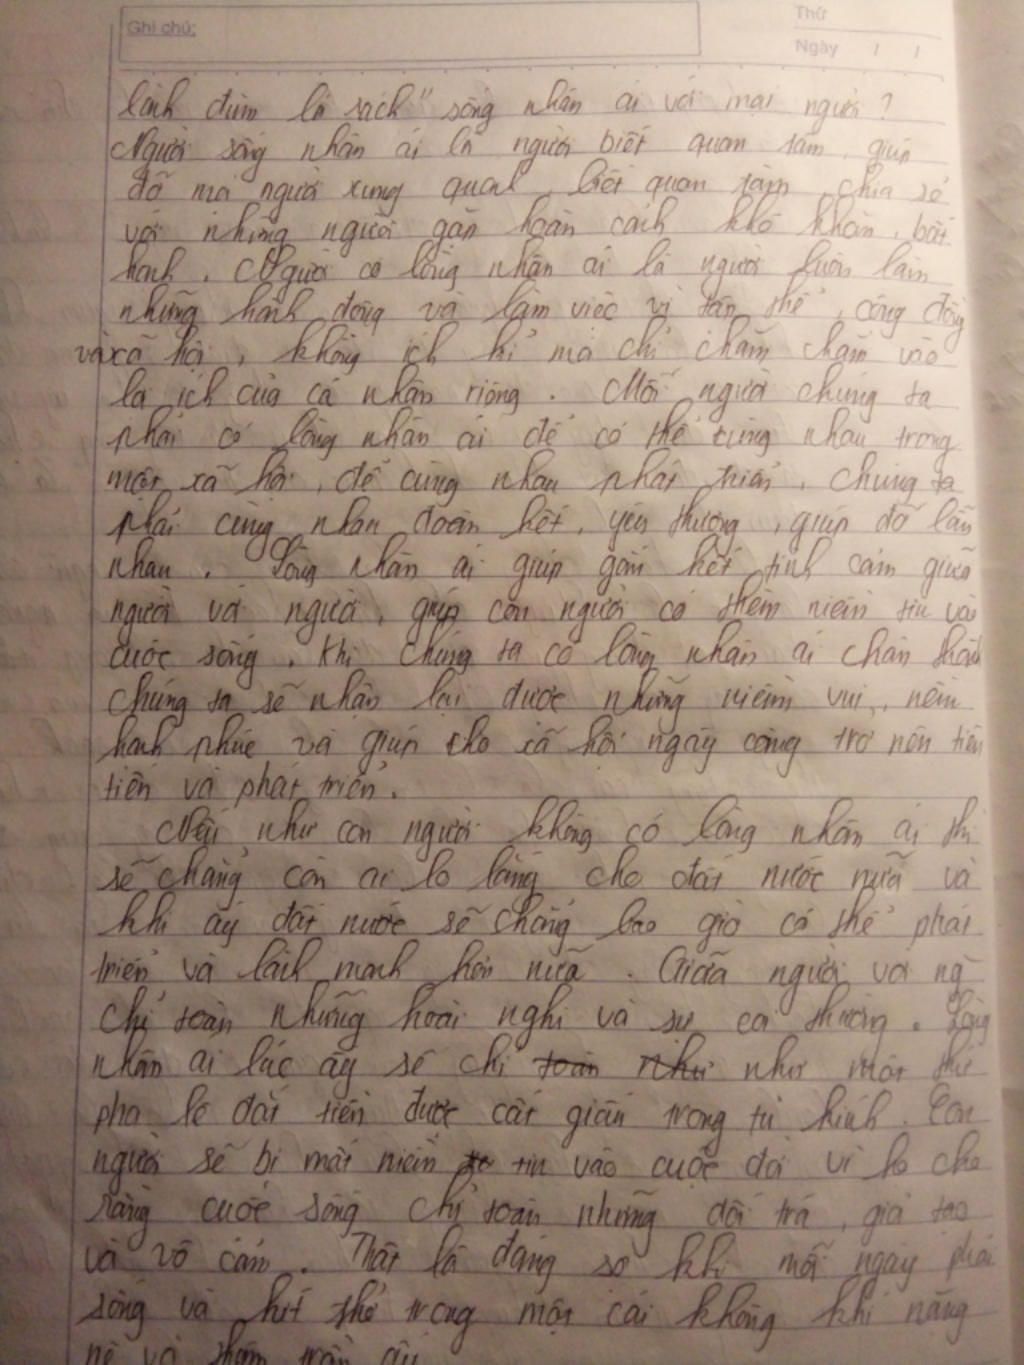 Ghi chú:
Thứ
Ngày / /
lành đùm lá rách" sống nhân ái với mọi người?
Người sống nhân ái là người biết quan tâm, giúp
đỡ mọi người xung quanh, biết quan tâm, chia sẻ
với những người gặp hoàn cảnh khó khăn, bất
hạnh. Người có lòng nhân ái là người luôn làm
những hành động và làm việc vì tập thể, cộng đồng
và xã hội, không ích kỉ mà chỉ chăm chăm vào
lợi ích của cá nhân riêng. Mỗi người chúng ta
phải có lòng nhân ái để có thể cùng nhau trong
một xã hội, để cùng nhau phát triển, chúng ta
phải cùng nhau đoàn kết, yêu thương, giúp đỡ lẫn
nhau. Lòng nhân ái giúp gắn kết tình cảm giữa
người với người, giúp con người có thêm niềm tin vào
cuộc sống. Khi chúng ta có lòng nhân ái chân thành
chúng ta sẽ nhận lại được những niềm vui, niềm
hạnh phúc và giúp cho xã hội ngày càng trở nên tiên
tiến và phát triển.
Nếu như con người không có lòng nhân ái thì
sẽ chẳng còn ai lo lắng cho đất nước nữa và
khi ấy đất nước sẽ chẳng bao giờ có thể phát
triển và lành mạnh hơn nữa. Giữa người với ng
chỉ toàn những hoài nghi và sự coi thường. Lòng
nhân ái lúc ấy sẽ chỉ toàn như như một thứ
pha lê đắt tiền được cất giấu trong tủ kính. Con
người sẽ bị mất niềm tin vào cuộc đời vì họ cho
rằng cuộc sống chỉ toàn những dối trá, giả tạo
và vô cảm. Thật là đáng sợ khi mỗi ngày phải
sống và hít thở trong một cái không khí nặng
nề và thảm trần ấy